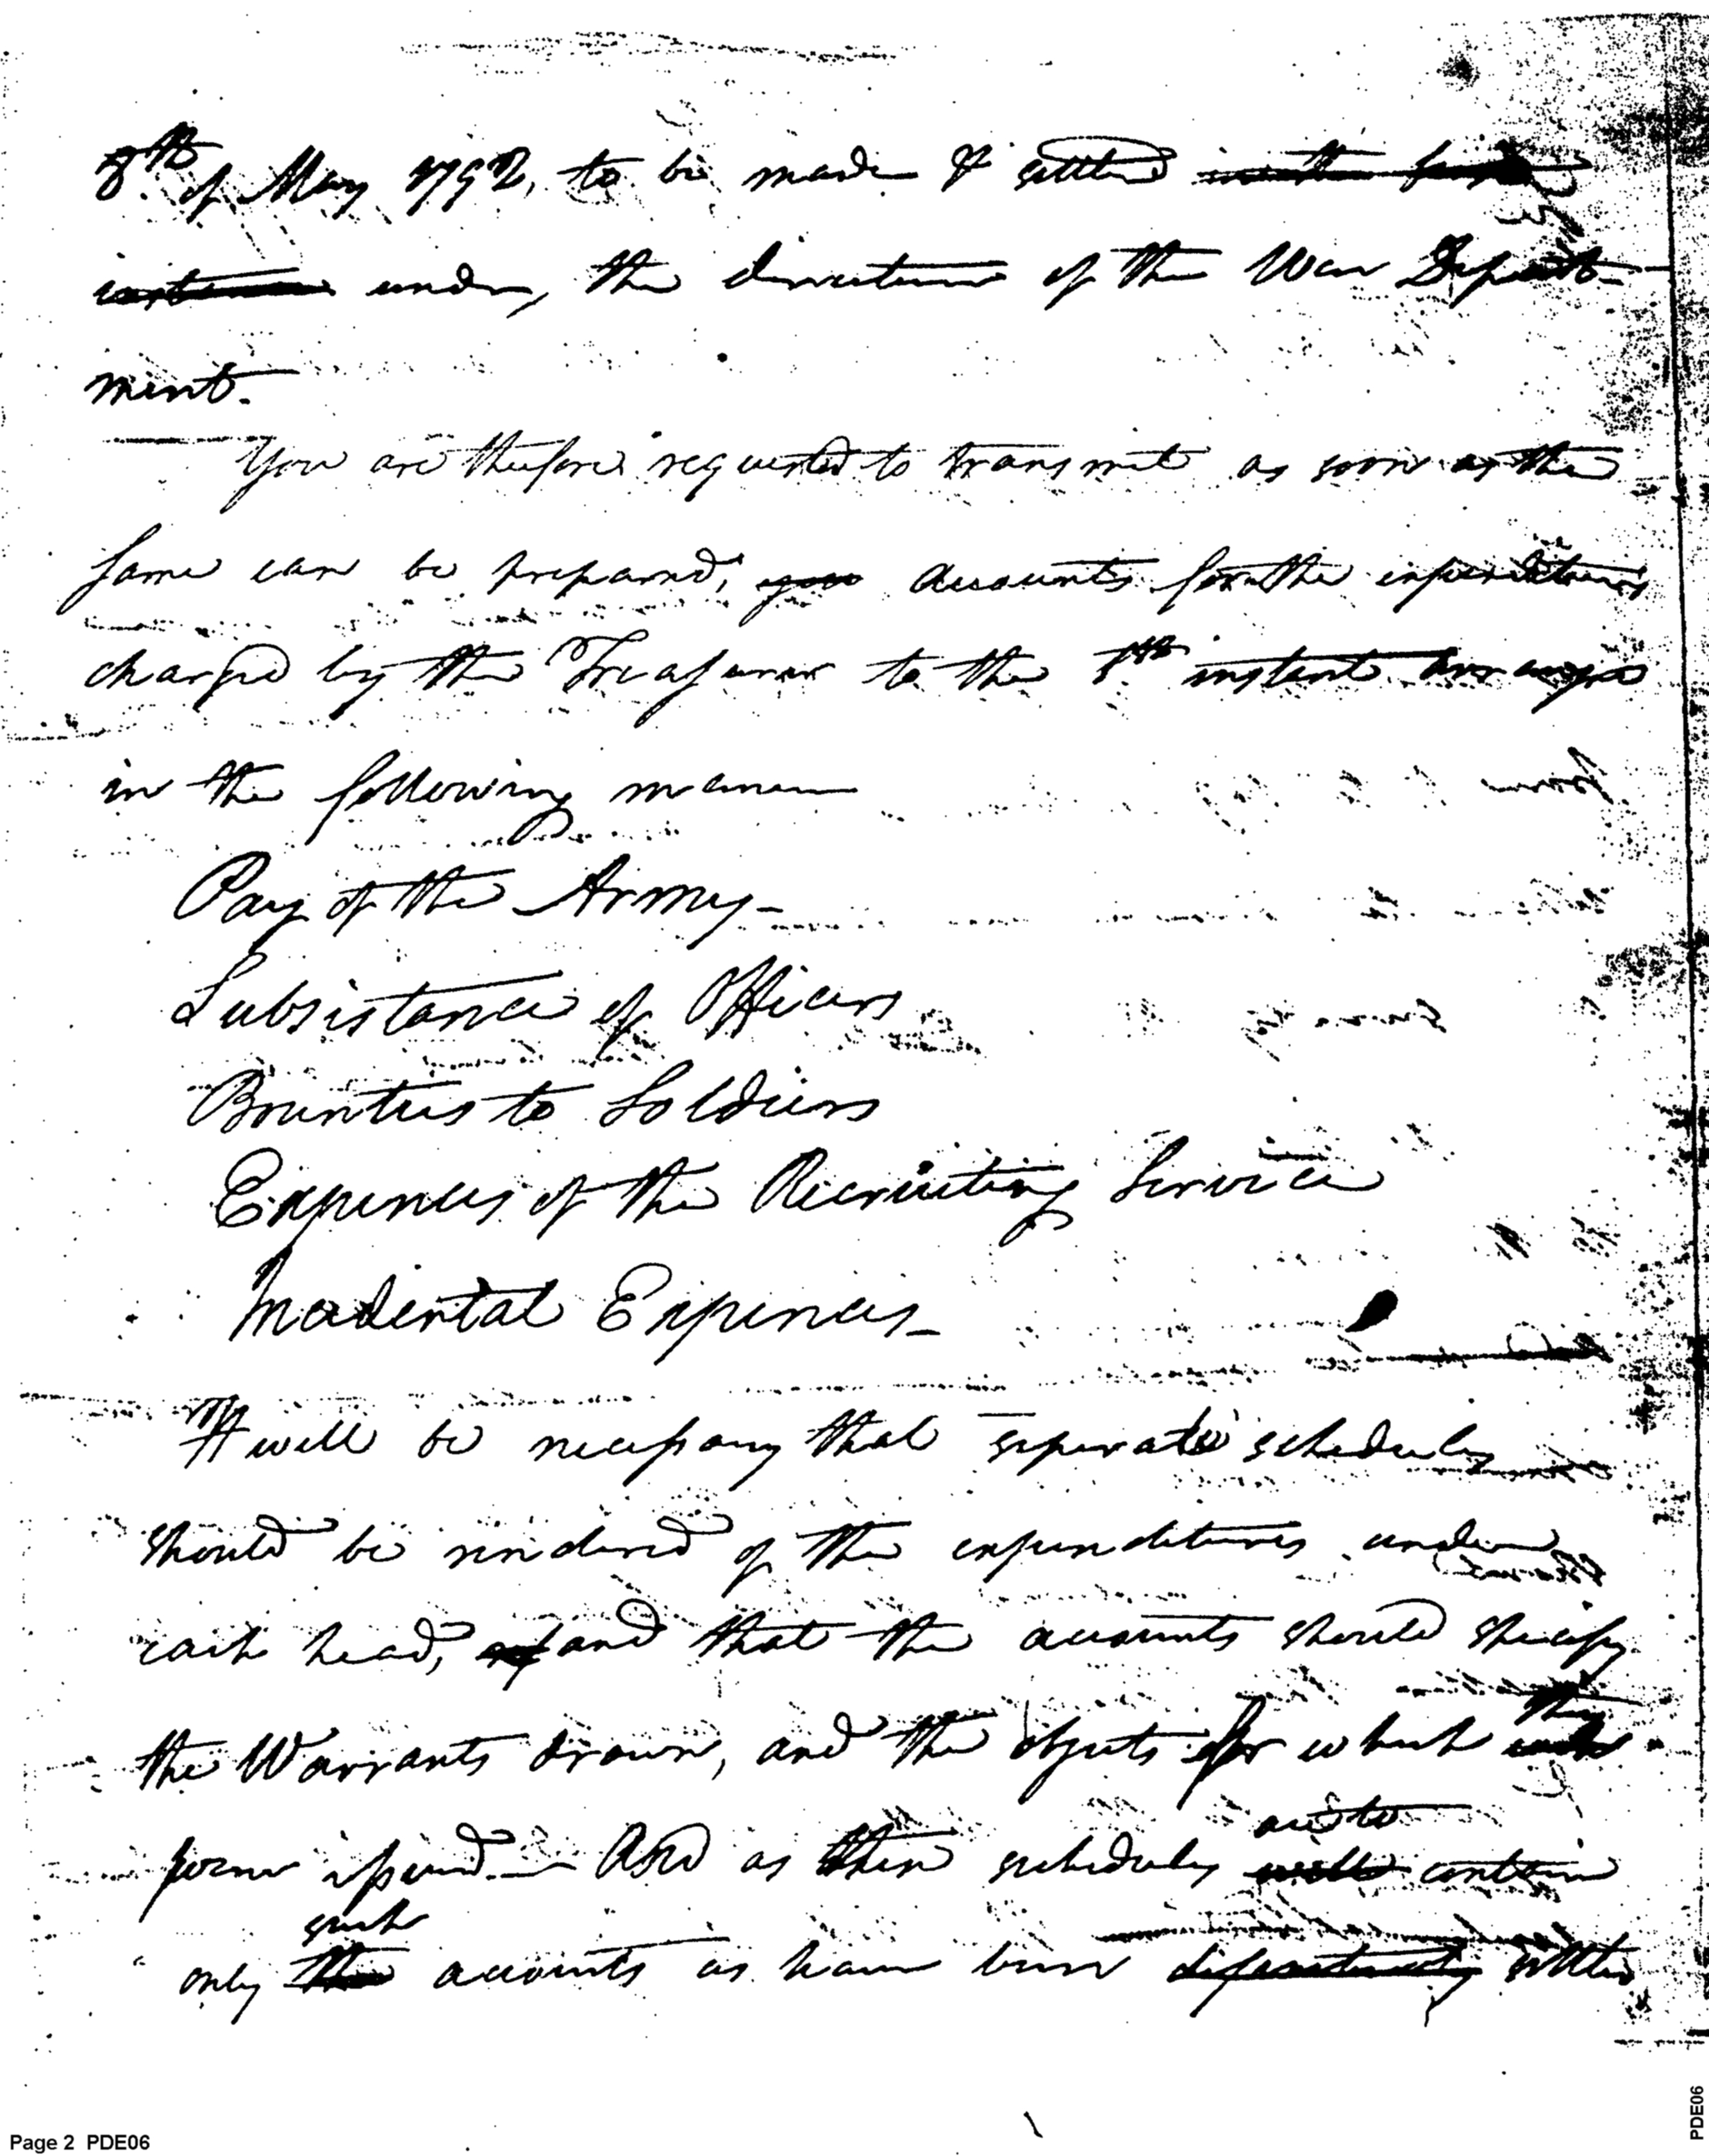 8th of May 1792, to be made & settled
under, the direction of the War Depart-
ment.
You are therefore requested to transmit as soon as the
same can be prepared, you accounts for the expenditures
charged by the Treasurer to the 8th instant arranged
in the following manner
Pay of the Army-
Subsistance of Officers
Bounties to Soldiers
Expences of the Recruiting Service
Incidental Expences_
It will be necessary that separate schedules
should be rendered of the expenditures under
each head, and that the accounts should specify
they
the Warrants drawn, and the objects for which
were issued. And as these schedules
are to
will contain
such
only the accounts as have been settled
Page 2 PDE06
PDE06